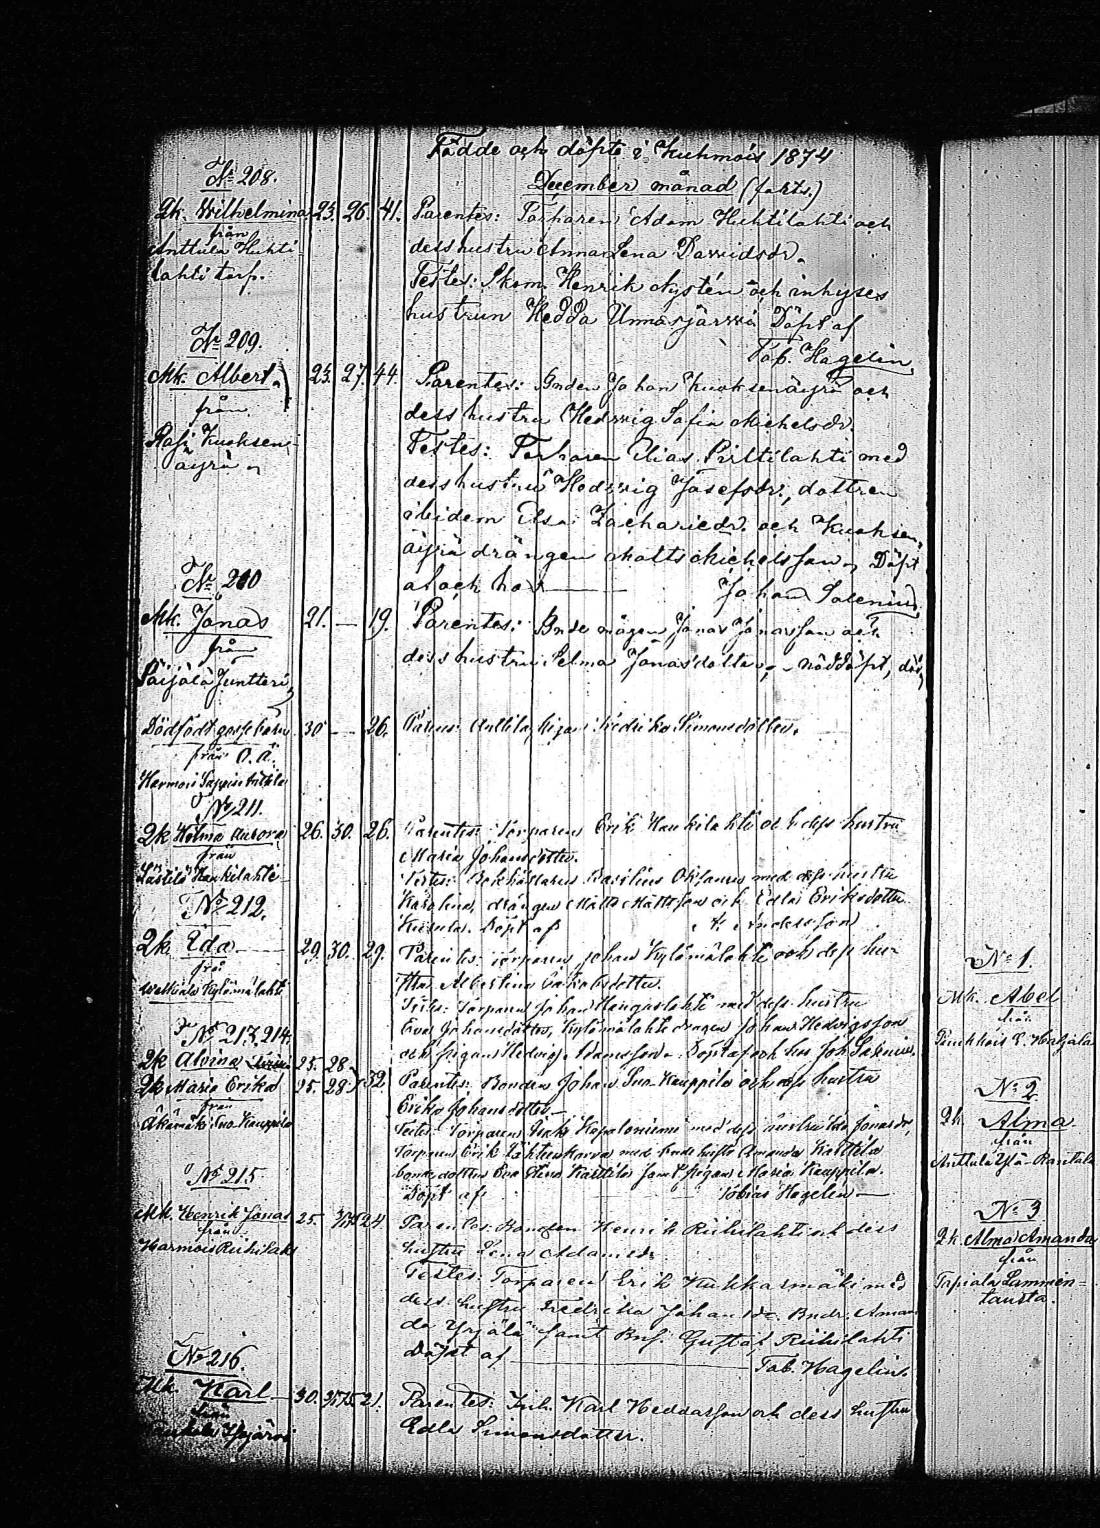 Födde och döpte i Kuhmois 1874
December månad (forts.)
No 208.
Qk. Wilhelmina 23. 26. 41.
från
Anttula Huhti-
lahti torp.
Parentes: Torparen Adam Huhtilahti och
dess hustru Anna Lena Davidsdr.
Testes: Skom. Henrik Nystén och inhyses
hustrun Hedda Unnasjärvi Döpt af
Tob. Hagelin.
No 209.
Mk. Albert 23. 27. 44.
från
Kuoksen-
äyrä
Parentes: Bonden Johan Kuoksenäyrä och
dess hustru Hedvig Sofia Michelsdr.
Testes: Torparen Elias Pirttilahti med
dess hustru Hedvig Josefsdr., dottren
ibidem Elsa Zachariedr. och Kuoksen-
äyrä drängen Matts Michelsson, Döpt
af och hos Johan Salenius.
No 210
Mk. Jonas 21. — 19.
från
Päijälä Juntteri
Parentes: Bonde mågen Jonas Jonasson och
dess hustru Selma Jonasdotter, nöddöpt, död
Dödfödt gossebarn 30 — 26.
från O. Ä.
Harmois Seppä Anttila
Parens: Anttila pigan Fredrika Simonsdotter.
No 211.
Qk Helma Aurora 26. 30. 26.
från
Haukilahti
Parentes: Torparen Erik Haukilahti och dess hustru
Maria Johansdotter.
Testes: Bokhållaren Basilius Oksanen med dess hustru
Karolina, drängen Matts Mattsson och Edla Eriksdotter
Döpt af Andersson
No 212.
Qk. Eda 29. 30. 29.
från
Kylämälahti
Parentes: Torparen Johan Kylämälahti och dess hu-
stru Albertina Jakobsdotter.
Testes: Torparen Johan Kangaslahti med dess hustru
Eva Johansdotter, Kylämälahti drängen Johan Hedvigsson
och pigan Hedvig Adamsdr. Döpt af och hos Joh. Salenius.
No 213, 214.
Qk Alvina 25. 28
Qk Maria Erika 25. 28 32.
från
Äkämäki Iso-Kauppila
Parentes: Bonden Johan Iso-Kauppila och dess hustru
Erika Johansdotter.
Testes: Torparen Isak med dess hustru Ida Jonasdr,
Torparen Erik med hustru Amanda Karttila
bondedottern Eva Stina Karttila samt pigan Maria Kauppila.
Döpt af Tobias Hagelin
No 215
Mk. Henrik Jonas 25. 24
från
Harmois Riihilahti
Parentes: Bonden Henrik Riihilahti och dess
hustru Lena Adamsdr.
Testes: Torparen Erik Kukkasmäki med
dess hustru Fredrika Johansdr. Bndr. Aman-
da Yrjälä samt Bns. Gustaf Riihilahti
Döpt af Tob. Hagelin.
No 216.
Mk. Karl 30. 21.
från
Parentes: Inh. Karl Heddasson och dess hustru
Edla Simonsdotter.
No 1.
Mk. Abel
från
No 2.
Qk. Alma
från
Anttula Ylä-Rantala
No 3
Qk. Alma Amanda
från
Tapiala Lammin-
tausta.